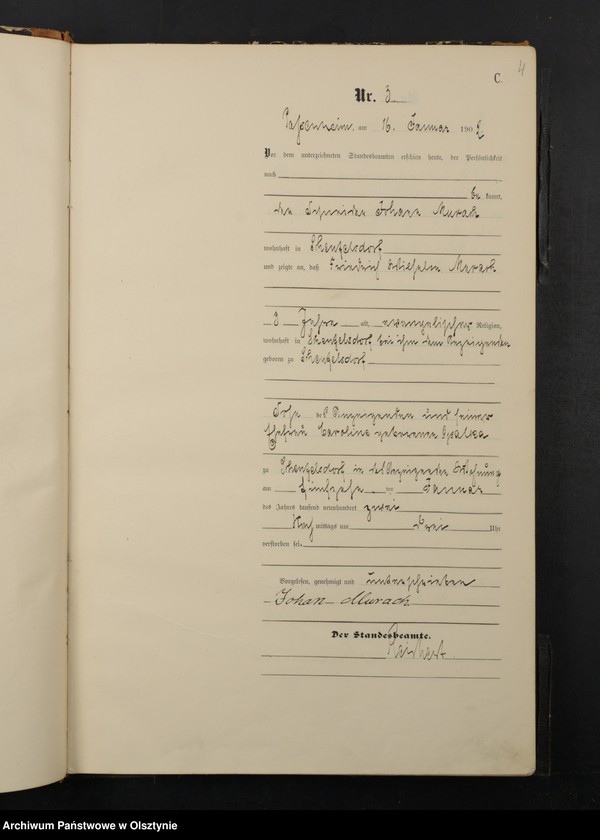 4
C.
Nr. 3
Passenheim, am 16. Januar 1902
Vor dem unterzeichneten Standesbeamten erschien heute, der Persönlichkeit
nach
be kannt,
der Schneider Johann Murach
wohnhaft in
und zeigte an, daß Friedrich Wilhelm Murach
3 Jahre alt, evangelischer Religion,
wohnhaft in bei ihm dem Anzeigenden
geboren zu
Sohn des Anzeigenden und seiner
Ehefrau Caroline geborenen
zu in des Anzeigenden Wohnung
am fünfzehn ten Januar
des Jahres tausend neunhundert zwei
Nach mittags um drei Uhr
verstorben sei.
Vorgelesen, genehmigt und unterschrieben
Johan Murach
Der Standesbeamte.
Archiwum Państwowe w Olsztynie